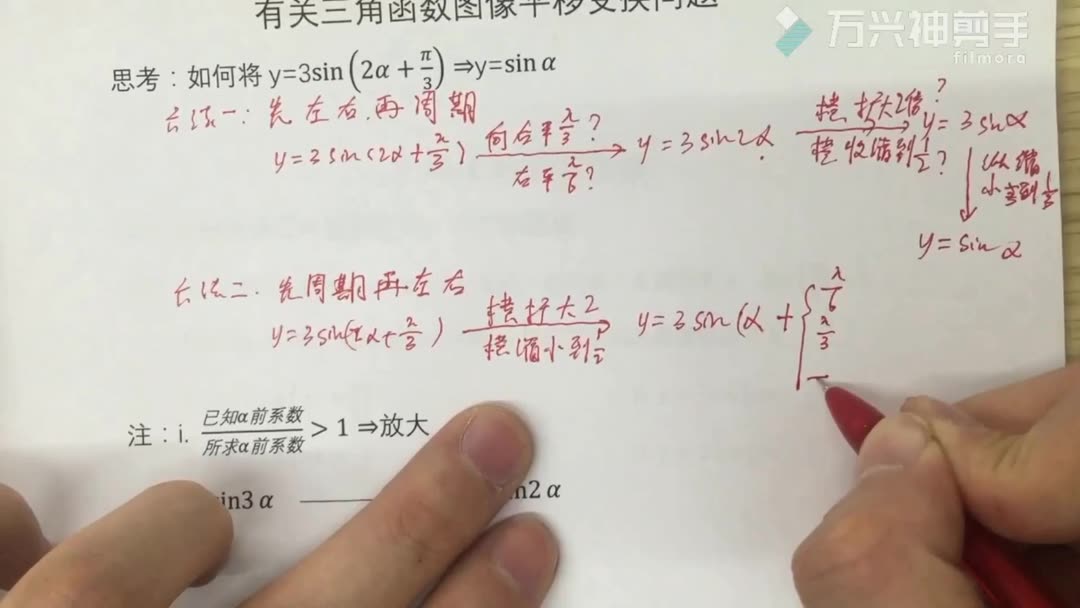 有关三角函数图像平移变换问题
万兴神剪手
filmora
思考：如何将 y=3sin(2α+π/3)⇒y=sin α
方法一：先左右,再周期
y=3sin(2α+π/3) 向右平π/3？ 右平π/6？ y=3sin2α 横扩大2倍？ 横收缩到1/2？ y=3sinα
纵缩
小到1/3
y=sinα
方法二．先周期再左右
y=3sin(2α+π/3) 横扩大2 横缩小到1/2 y=3sin(α+ π/6
π/3
注：i. 已知α前系数/所求α前系数 > 1 ⇒放大
in3 α n2 α